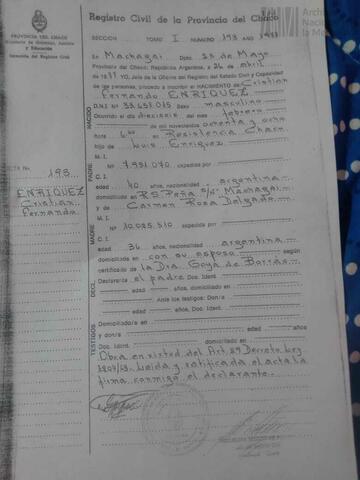 PROVINCIA DEL CHACO
Ministerio de Gobierno, Justicia
y Educación
Dirección del Registro Civil
Registro Civil de la Provincia del Chaco
Archivo
Nacional
la Mem
SECCION TOMO I NUMERO 193 AÑO
En Machagai Dpto. 25 de Mayo
Provincia del Chaco, República Argentina, a 26 de abril
YO, Jefe de la Oficina del Registro del Estado Civil y Capacidad
de las personas, procedo a inscribir el NACIMIENTO de Cristian
Fernando ENRIQUEZ
D.N.I. Nº sexo masculino
Ocurrido el día diecisiete del mes febrero
de mil novecientos ochenta y ocho
hora en Resistencia Chaco
hijo de Luis Enriquez
M. I.
expedida por
C. I.
edad 40 años, nacionalidad argentina
domiciliado en R.S. Peña s/nº Machagai
y de Carmen Rosa Delgado
M. I.
10.025.510 expedida por
C. I.
edad 36 años, nacionalidad argentina
domiciliada en con su esposo según
certificado de la Dra. Goya de Borrás
Declarante el padre Doc. Ident.
edad años, domicilio
Ante los testigos: Don/a
edad años
Domiciliado/a en
y Don/a edad años
domiciliado en
Doc. Ident.
Obra en virtud del Art. 29 Decreto Ley
Leída y ratificada el acta la
firma conmigo el declarante
NACIDO
PADRE
MADRE
TESTIGOS
ACTA Nro. 193
ENRIQUEZ
Cristian
Fernando